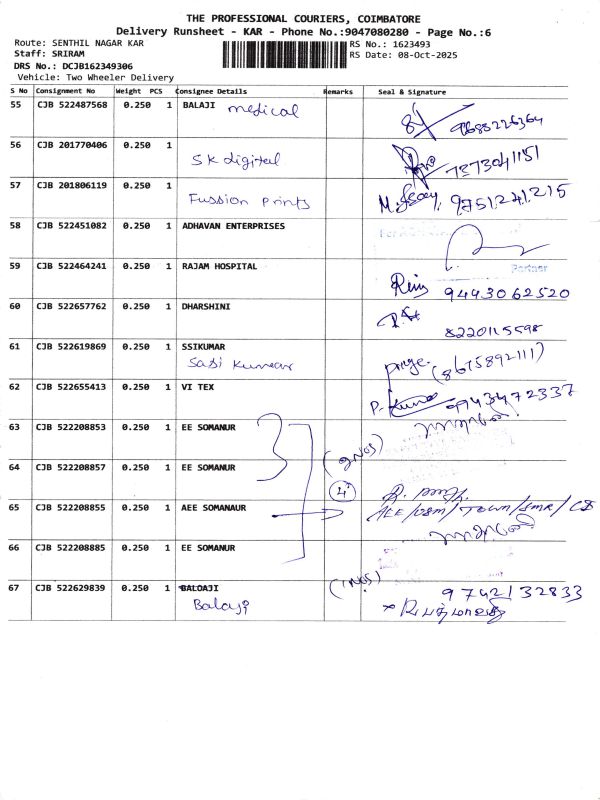 THE PROFESSIONAL COURIERS, COIMBATORE
Delivery Runsheet - KAR - Phone No.:9047080280 - Page No.:6
Route: SENTHIL NAGAR KAR RS No.: 1623493
Staff: SRIRAM RS Date: 08-Oct-2025
DRS No.: DCJB162349306
Vehicle: Two Wheeler Delivery
S No Consignment No Weight PCS Consignee Details Remarks Seal & Signature
55 CJB 522487568 0.250 1 BALAJI medical
9688226364
56 CJB 201770406 0.250 1
SK digital 7373041151
57 CJB 201806119 0.250 1
Fussion Prints 9751241215
58 CJB 522451082 0.250 1 ADHAVAN ENTERPRISES
Partner
59 CJB 522464241 0.250 1 RAJAM HOSPITAL
9443062520
60 CJB 522657762 0.250 1 DHARSHINI
8220115598
61 CJB 522619869 0.250 1 SSIKUMAR
Sasi Kumar (8675892111)
62 CJB 522655413 0.250 1 VI TEX
9943472337
63 CJB 522208853 0.250 1 EE SOMANUR
(2NOS)
64 CJB 522208857 0.250 1 EE SOMANUR
4
65 CJB 522208855 0.250 1 AEE SOMANAUR
AEE/O&M/TOWN/SMR/
66 CJB 522208885 0.250 1 EE SOMANUR
67 CJB 522629839 0.250 1 BALOAJI
9742132833
Balaji